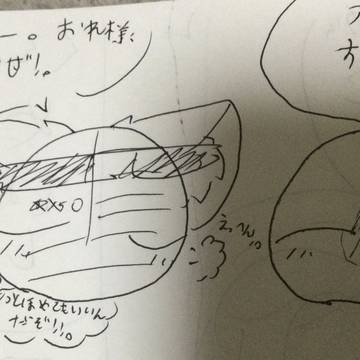 ー。おれ様、
ぜ!。
す
x50
えっへん。
っとほめてもいいん
だぞ!!。